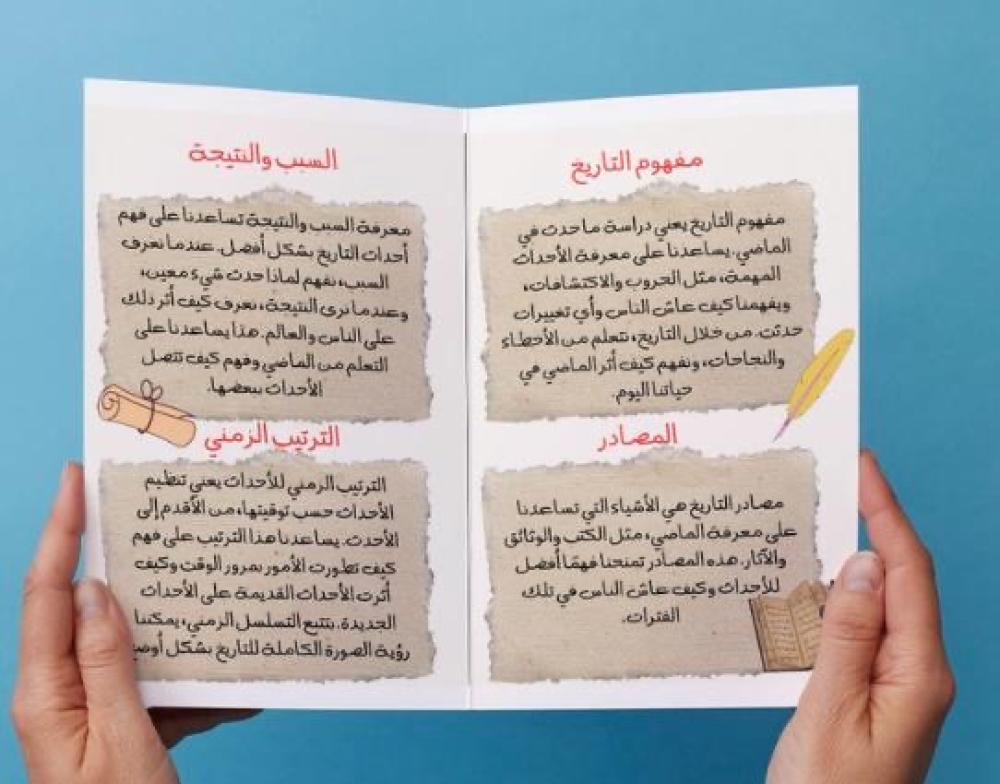 مفهوم التاريخ
مفهوم التاريخ يعني دراسة ما حدث في
الماضي. يساعدنا على معرفة الأحداث
المهمة، مثل الحروب والاكتشافات،
ويفهمنا كيف عاش الناس وأي تغييرات
حدثت. من خلال التاريخ، نتعلم من الأخطاء
والنجاحات، ونفهم كيف أثر الماضي في
حياتنا اليوم.
المصادر
مصادر التاريخ هي الأشياء التي تساعدنا
على معرفة الماضي، مثل الكتب والوثائق
والآثار. هذه المصادر تمنحنا فهمًا أفضل
للأحداث وكيف عاش الناس في تلك
الفترات.
السبب والنتيجة
معرفة السبب والنتيجة تساعدنا على فهم
أحداث التاريخ بشكل أفضل. عندما نعرف
السبب، نفهم لماذا حدث شيء معين،
وعندما نرى النتيجة، نعرف كيف أثر ذلك
على الناس والعالم. هذا يساعدنا على
التعلم من الماضي وفهم كيف تتصل
الأحداث ببعضها.
الترتيب الزمني
الترتيب الزمني للأحداث يعني تنظيم
الأحداث حسب توقيتها، من الأقدم إلى
الأحدث. يساعدنا هذا الترتيب على فهم
كيف تطورت الأمور بمرور الوقت وكيف
أثرت الأحداث القديمة على الأحداث
الجديدة. بتتبع التسلسل الزمني، يمكننا
رؤية الصورة الكاملة للتاريخ بشكل